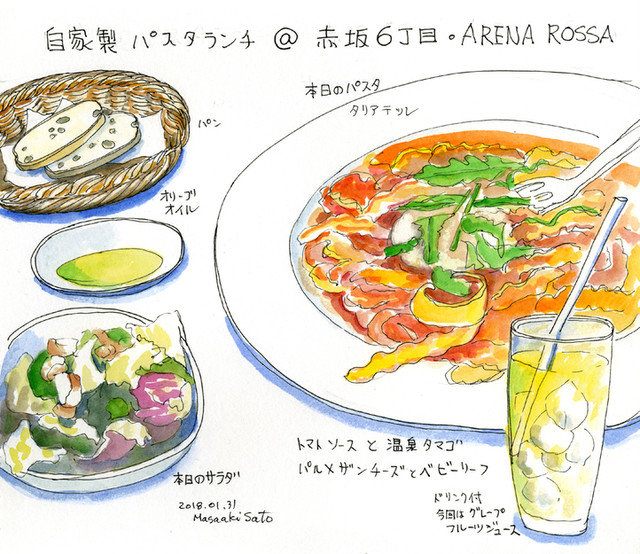 自家製 パスタランチ @ 赤坂6丁目・ARENA ROSSA
本日のパスタ
タリアテッレ
パン
オリーブ
オイル
本日のサラダ
2018.01.31
Masaaki Sato
トマトソース と 温泉タマゴ
パルメザンチーズとベビーリーフ
ドリンク付
今回はグレープ
フルーツジュース